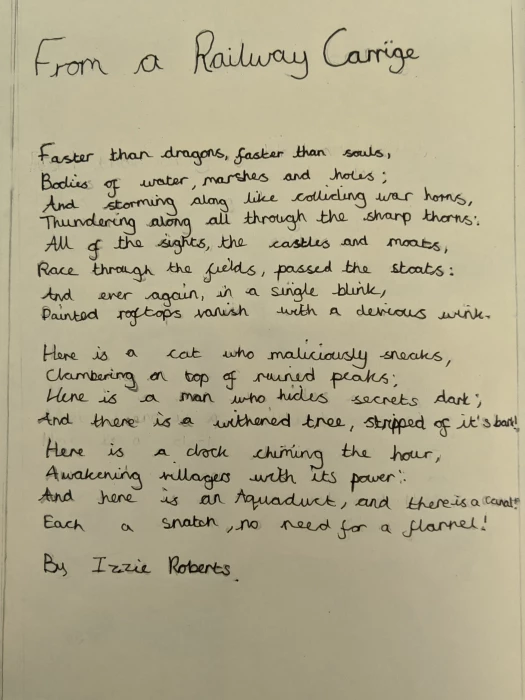 From a Railway Carrige
Faster than dragons, faster than souls,
Bodies of water, marshes and holes;
And storming along like colliding war horns,
Thundering along all through the sharp thorns:
All of the sights, the castles and moats,
Race through the fields, passed the stoats:
And ever again, in a single blink,
Painted rooftops vanish with a devious wink.
Here is a cat who maliciously sneaks,
Clambering on top of ruined peaks;
Here is a man who hides secrets dark;
And there is a withened tree, stripped of it's bark!
Here is a clock chiming the hour,
Awakening villages with its power:
And here is an Aquaduct, and there is a canal:
Each a snatch, no need for a flannel!
By Izzie Roberts.